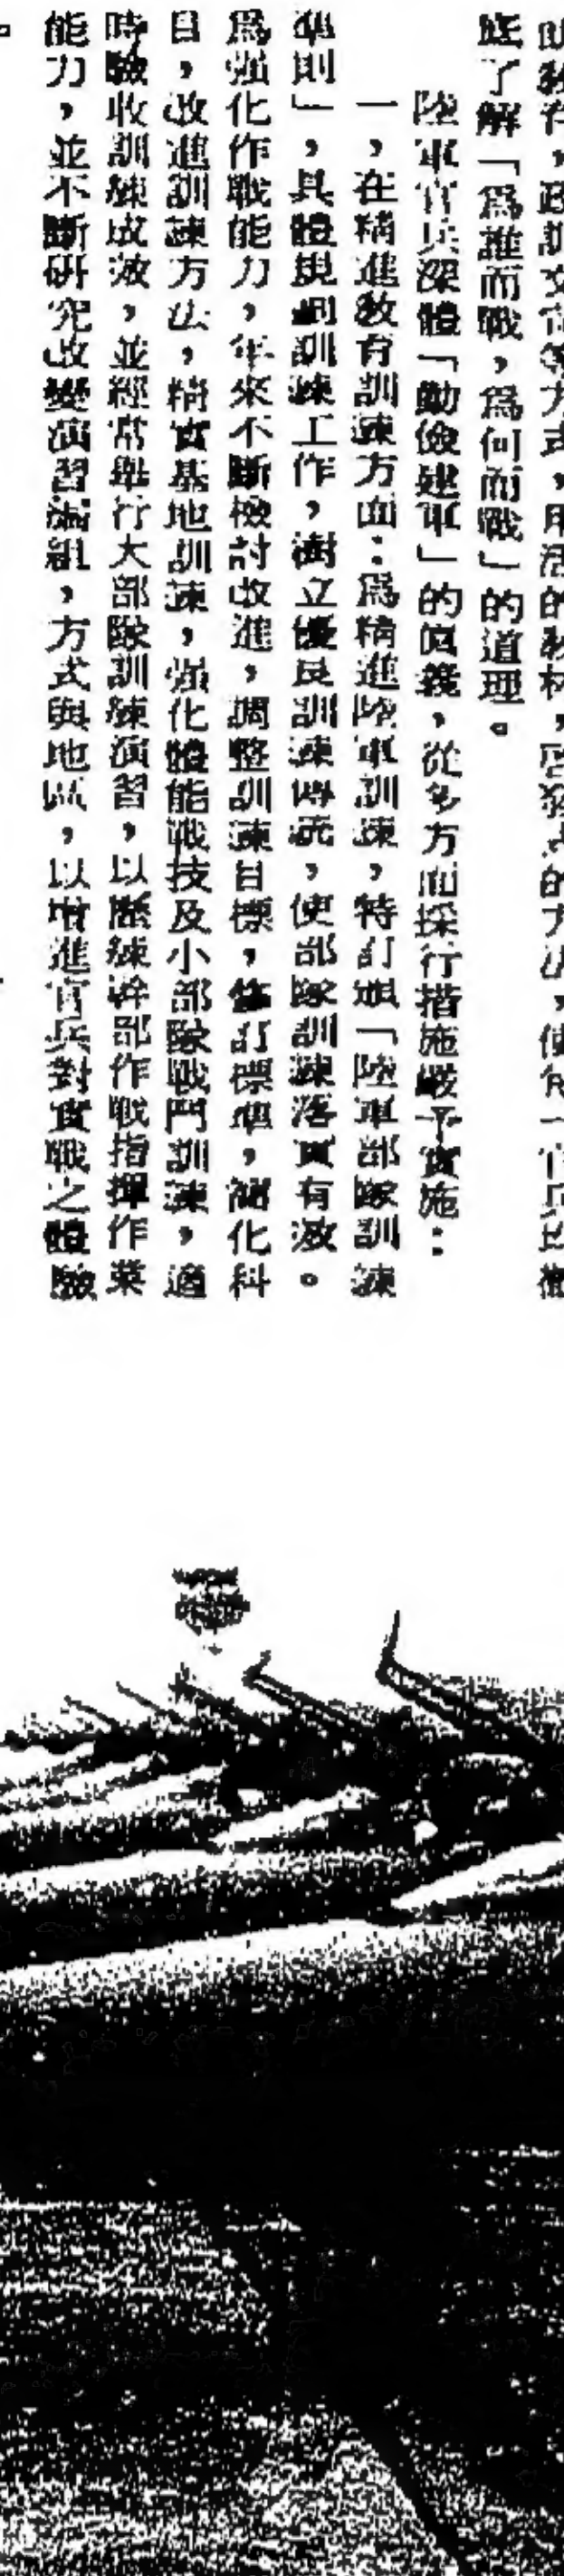 助教育，政訓文宣等方式，用活的教材，啓發式的方法，使每一官兵均徹
底了解「爲誰而戰，爲何而戰」的道理。
陸軍官兵深體「勤儉建軍」的眞義，從多方面採行措施嚴予實施：
一，在精進教育訓練方面：爲精進陸軍訓練，特訂頒「陸軍部隊訓練
準則」，具體規劃訓練工作，樹立優良訓練傳統，使部隊訓練落實有效。
爲强化作戰能力，年來不斷檢討改進，調整訓練目標，修訂標準，簡化科
目，改進訓練方法，精實基地訓練，强化體能戰技及小部隊戰鬥訓練，適
時驗收訓練成效，並經常舉行大部隊訓練演習，以歷練幹部作戰指揮作業
能力，並不斷研究改變演習編組，方式與地區，以增進官兵對實戰之體驗
。